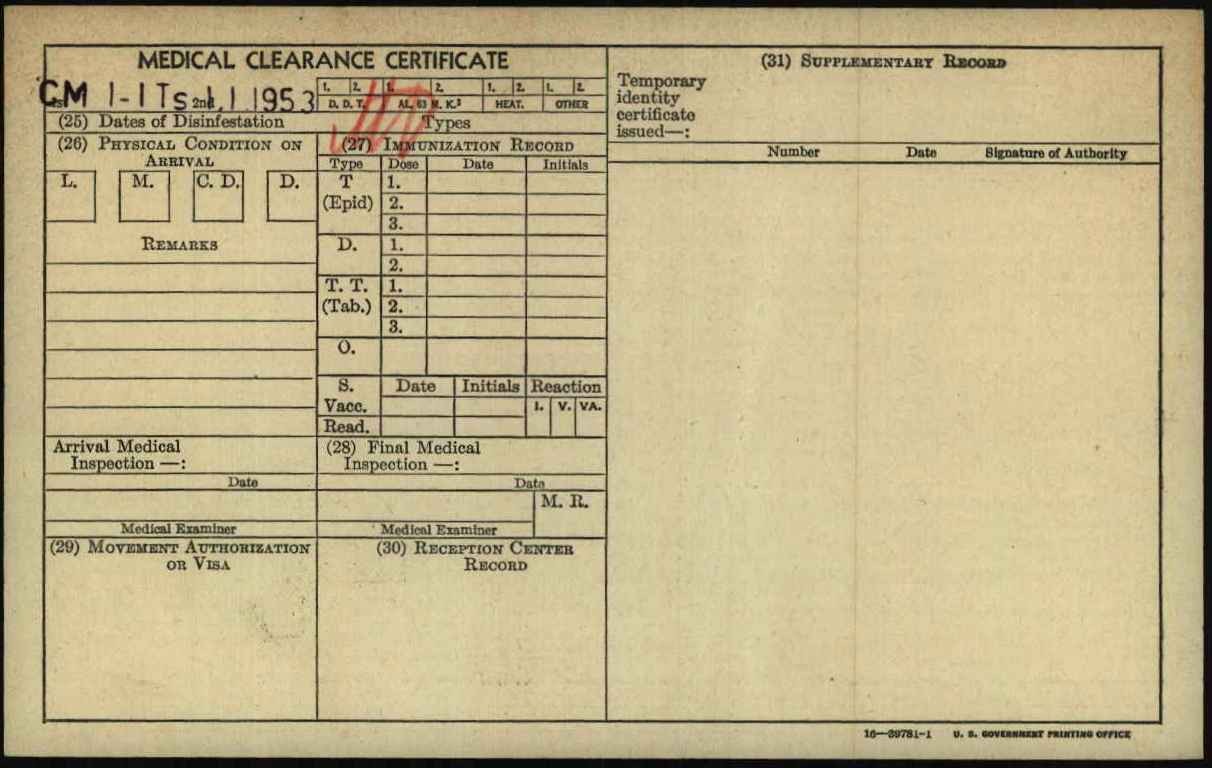 MEDICAL CLEARANCE CERTIFICATE
GM 1-1 TS 2nd 1,1 1953
1. 2. 1. 2. 1. 2. 1. 2.
D. D. T. AL. 63 M. K.³ HEAT. OTHER
(25) Dates of Disinfestation Types
(26) PHYSICAL CONDITION ON
ARRIVAL
L. M. C. D. D.
REMARKS
(27) IMMUNIZATION RECORD
Type Dose Date Initials
T 1.
(Epid) 2.
3.
D. 1.
2.
T. T. 1.
(Tab.) 2.
3.
O.
S. Date Initials Reaction
Vacc. I. V. VA.
Read.
Arrival Medical
Inspection —:
Date
Medical Examiner
(28) Final Medical
Inspection —:
Date
M. R.
Medical Examiner
(29) MOVEMENT AUTHORIZATION
OR VISA
(30) RECEPTION CENTER
RECORD
(31) SUPPLEMENTARY RECORD
Temporary
identity
certificate
issued—:
Number Date Signature of Authority
16—39781-1 U. S. GOVERNMENT PRINTING OFFICE